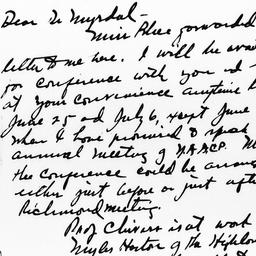 Dear Dr Myrdal-
Miss Blue forwarded
letter to me here. I will be avai
for conference with you ad-
at your convenience anytime b
June 25 ad July 6, except June
when I have promised to speak
annual meeting of NAACP.
the conference could be arran
either just before or just aft
Richmond meeting.
Prof Chivers is at work
Myles Horton of the Highlan